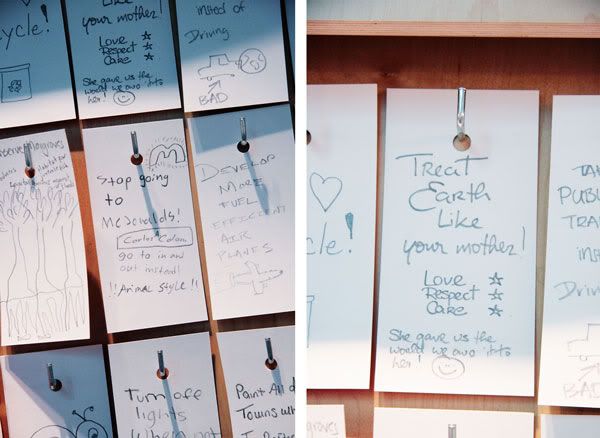 ycle!
like
your mother!
Love
Respect
Care
She gave us the
world we owe it to
her!
insted of
Driving
BAD
Mangroves
Stop going
to
McDonalds!
go to in and
out instead!
!!Animal Style!!
Develop
More
Fuel
Efficient
Air
Planes
Turn off
lights
when not
Paint All
Towns
cle!
Treat
Earth
Like
your mother!
Love
Respect
Care
She gave us the
world we owe it to
her!
PUB
TRA
inst
Drivin
BAD